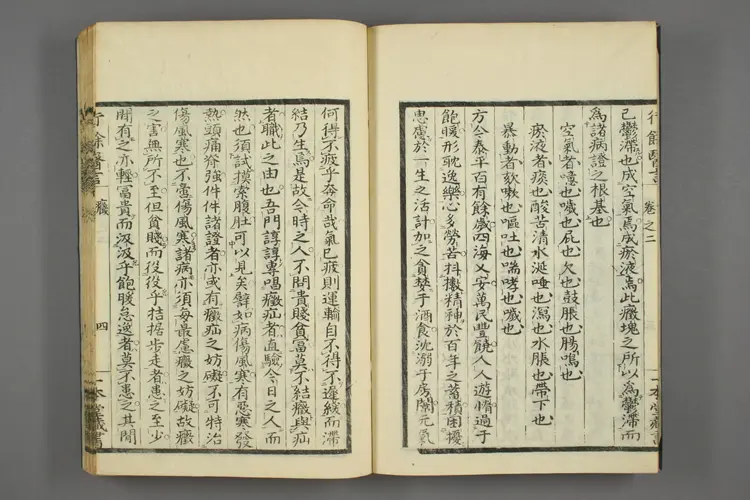 已鬱滯也成空氣焉成瘀液焉此癥塊之所以為鬱滯而
為諸病證之根基也
空氣者噫也噦也屁也欠也鼓脹也腸鳴也
瘀液者痰也酸苦清水涎唾也瀉也水脹也帶下也
暴動者欬嗽也嘔吐也喘哮也噦也
方今泰平百有餘歲四海乂安萬民豐饒人人遊惰過于
飽暖形耽逸樂心多勞苦抖擻精神於百年之蓄積困擾
思慮於一生之活計加之貪婪于酒食沈溺于房閨元氣
何得不疲乎奈命哉氣已疲則運輸自不得不遲緩而滯
結乃生焉是故今時之人不問貴賤貧富莫不結癥與疝
者職此之由也吾門諄諄專唱癥疝者直驗今日之人而
然也須試摸索腹肚可以見矣譬如病傷風寒有惡寒發
熱頭痛脊強件件諸證者亦或有癥疝之妨礙不可特治
傷風寒也不啻傷風寒諸病亦須每最慮癥之妨礙故癥
之害無所不至但貧賤而役役乎拮据步走者患之至少
間有之亦輕富貴而汲汲乎飽暖怠逸者莫不患之其間
行餘醫言 卷之二
一本堂藏書
行餘醫言 癥
四
一本堂藏書